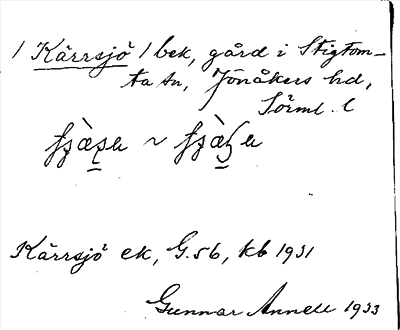 1 Kärrsjö 1 bek, gård i Stigtom-
ta sn, Jönåkers hd,
Sörml. l
~
Kärrsjö ek, G.5b, kb 1931
Gunnar Annell 1933